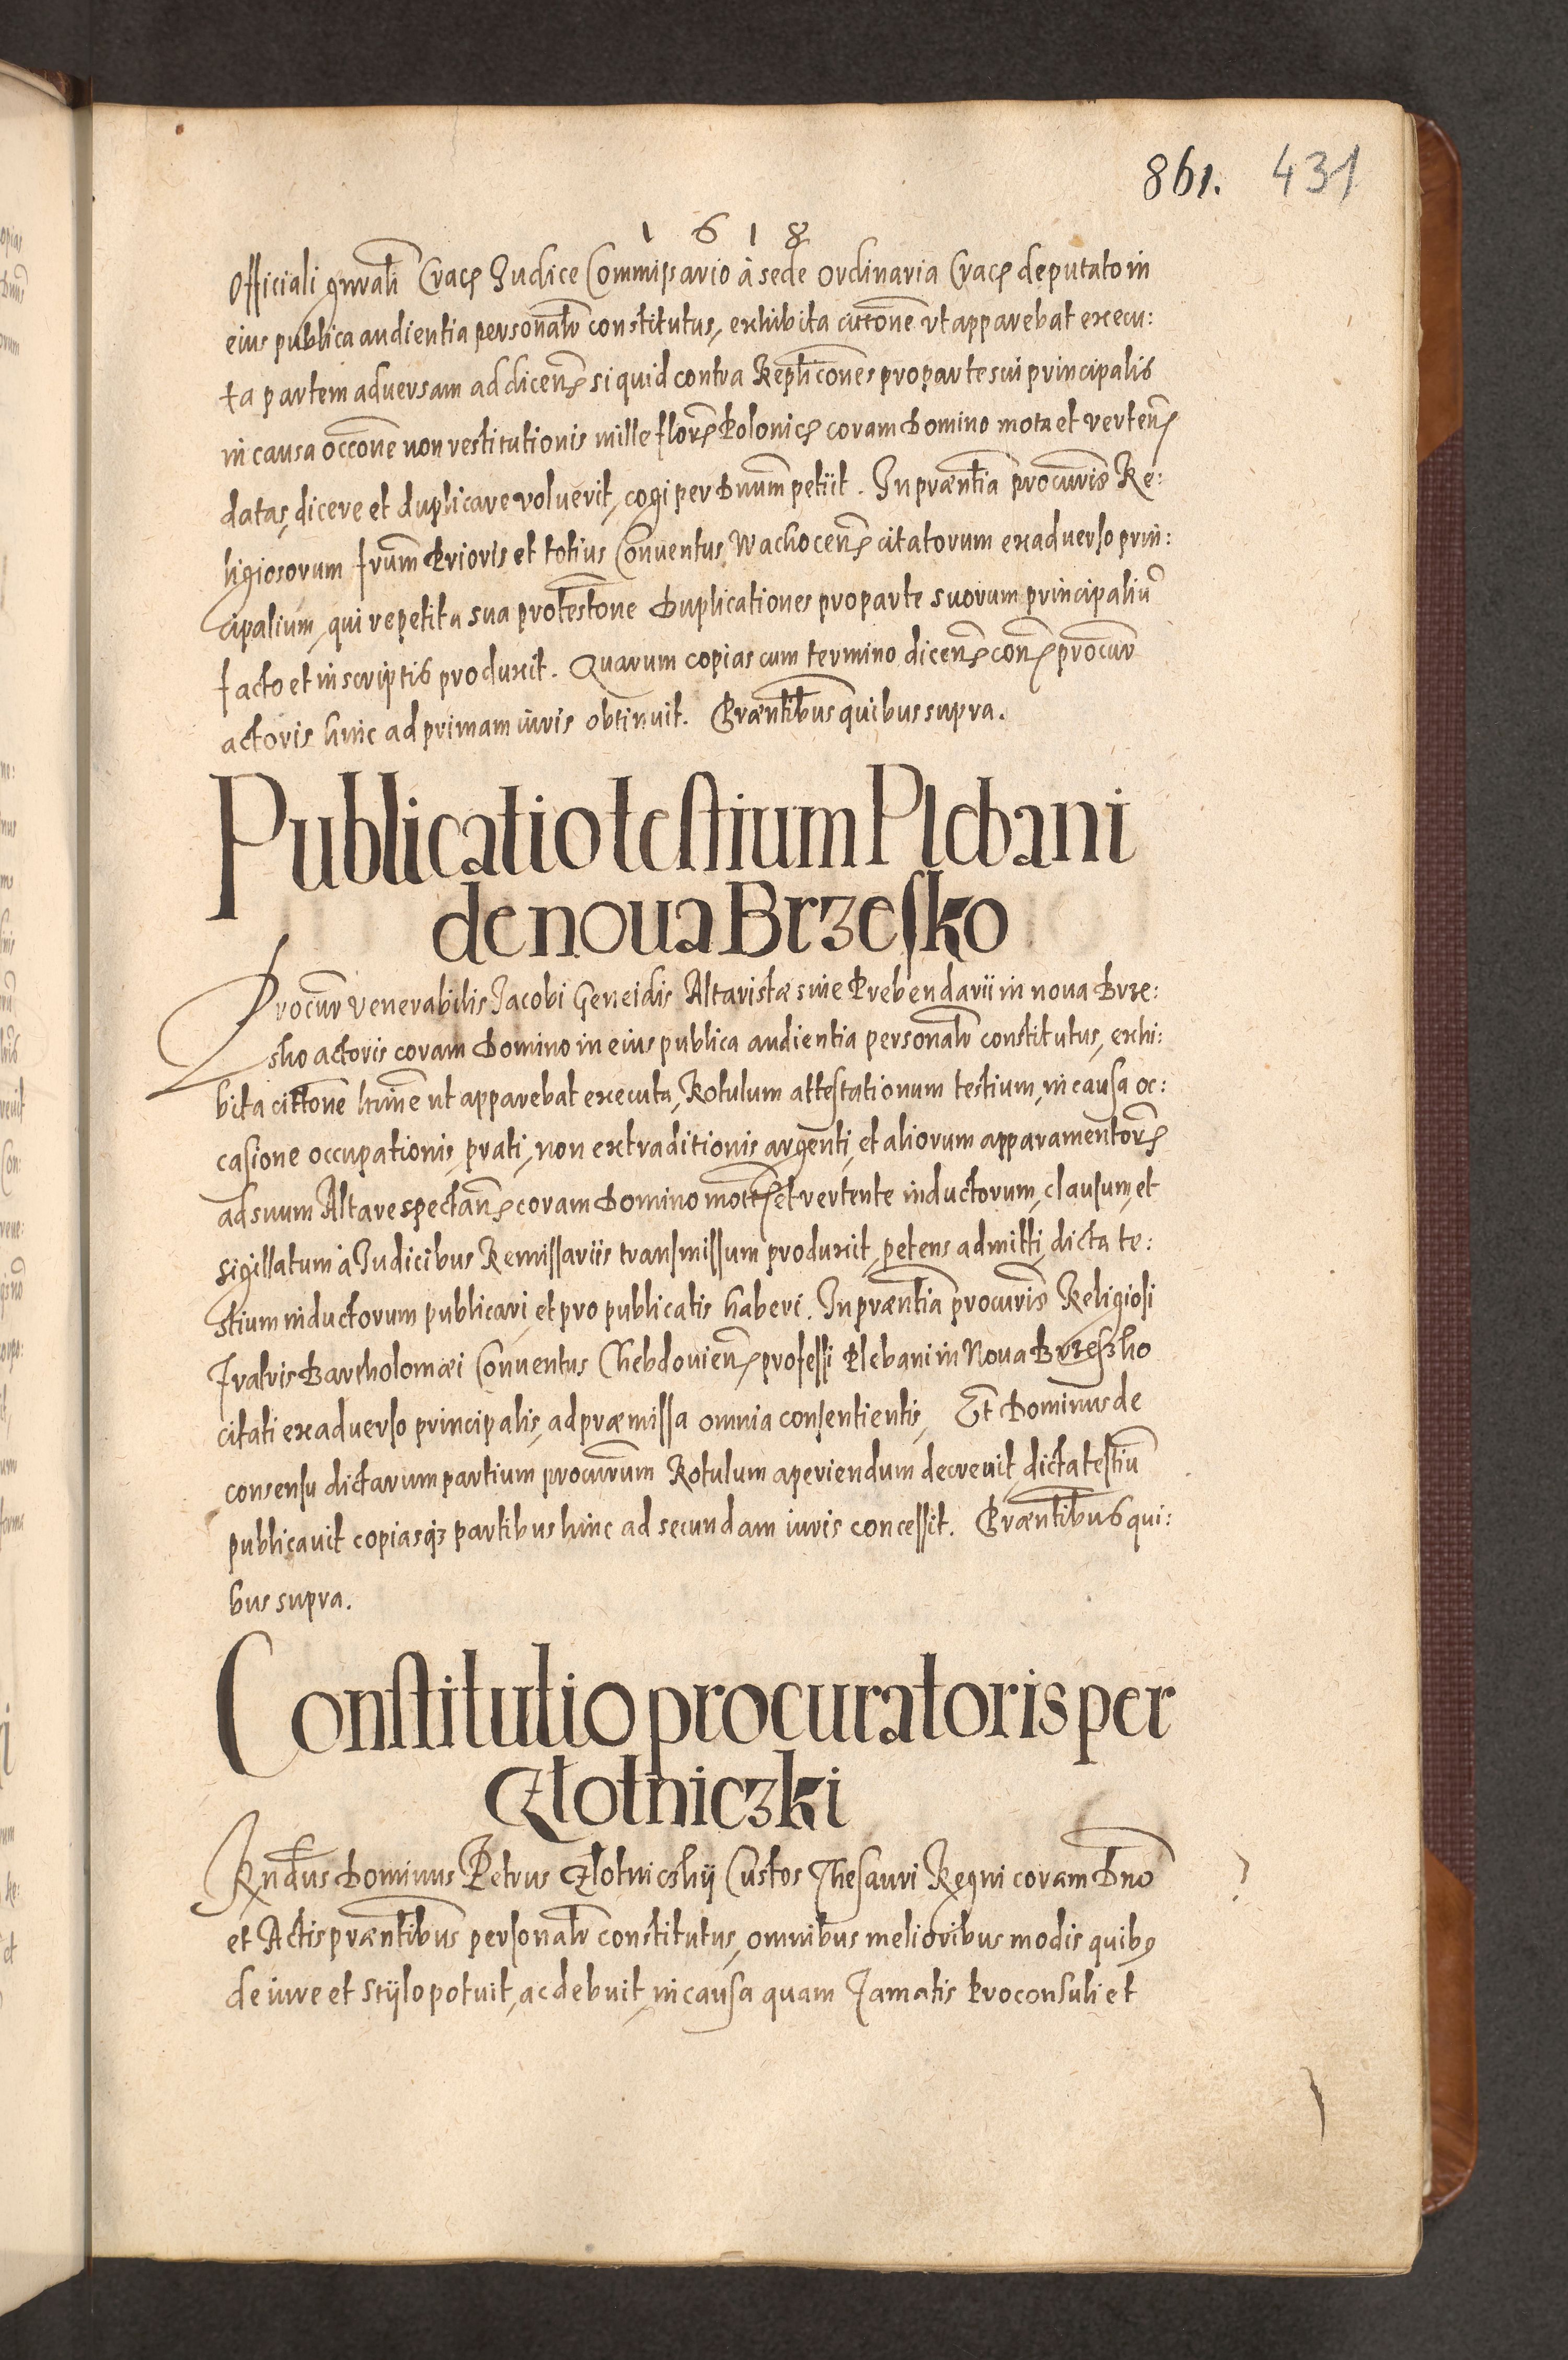 861. 431
1618
Officiali gnrali Crac. Judice Commissario à sede Ordinaria Crac. deputato in
eius publica audientia personalr constitutus, exhibita cittone ut apparebat execu:
ta partem adversam ad dicen. si quid contra Replicones pro parte sui principalis
in causa occone non restitutionis mille floren. Polonic. coram Domino mota et verten.
datas, dicere et duplicare voluerit, cogi per Dnum petiit. In præntia procuris Re:
ligiosorum frum Prioris et totius Conventus Wachocen. citatorum ex adverso prin:
cipalium, qui repetita sua protestone Duplicationes pro parte suorum principaliũ
facto et in scriptis produxit. Quarum copias cum termino dicen. con. procur
actoris hinc ad primam iuris obtinuit. Præntibus quibus supra.
Publicatio testium Plebani
de noua Brzesko
Procur venerabilis Jacobi Geneidis Altaristæ sive Prebendarii in noua Brze:
sko actoris coram Domino in eius publica audientia personalr constitutus, exhi:
bita cittone hinc ut apparebat executa, Rotulum attestationum testium, in causa oc:
casione occupationis prati, non extraditionis argenti, et aliorum apparamentor.
ad suum Altare spectan. coram Domino mot. et vertente inductorum, clausum, et
sigillatum à Judicibus Remissariis transmissum produxit, petens admitti, dicta te:
stium inductorum publicari, et pro publicatis haberi. In præntia procuris Religiosi
fratris Bartholomæi Conventus Chebdovien. professi Plebani in Nova Brzeszko
citati ex adverso principalis, ad præmissa omnia consentientis, Et Dominus de
consensu dictarum partium procurum Rotulum aperiendum decrevit, dicta testiũ
publicavit copiasq3 partibus hinc ad secundam iuris concessit. Præntibus qui:
bus supra.
Constitutio procuratoris per
Złotniczki
Rndus Dominus Petrus Złotniczkij Custos Thesauri Regni coram Dno
et Actis præntibus personalr constitutus, omnibus melioribus modis quib9
de iure et stÿlo potuit, ac debuit, in causa quam famatis Proconsuli et